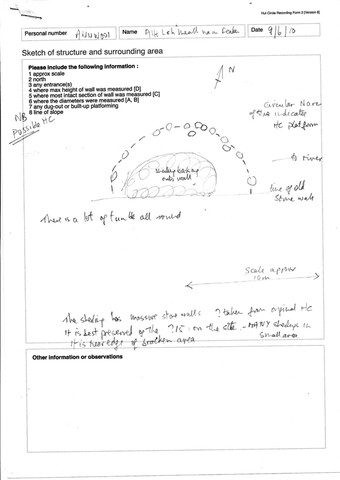 Hut Circle Recording Form 2 [Version 2]
Personal number
Name
Date 9/6/10
Sketch of structure and surrounding area
Please include the following information :
1 approx scale
2 north
3 any entrance(s)
4 where max height of wall was measured [D]
5 where most intact section of wall was measured [C]
6 where the diameters were measured [A, B]
7 any dug-out or built-up platforming
8 line of slope
NB
Possible HC
N
Circular Nature
of this indicates
HC platform
to river
line of old
Stone wall
There is a lot of tumble all round
Scale approx
10m
The shieling has massive stone walls ? taken from original HC
It is best preserved of the ?15 on the site - MANY shielings in
small area
It is near edge of bracken area
Other information or observations